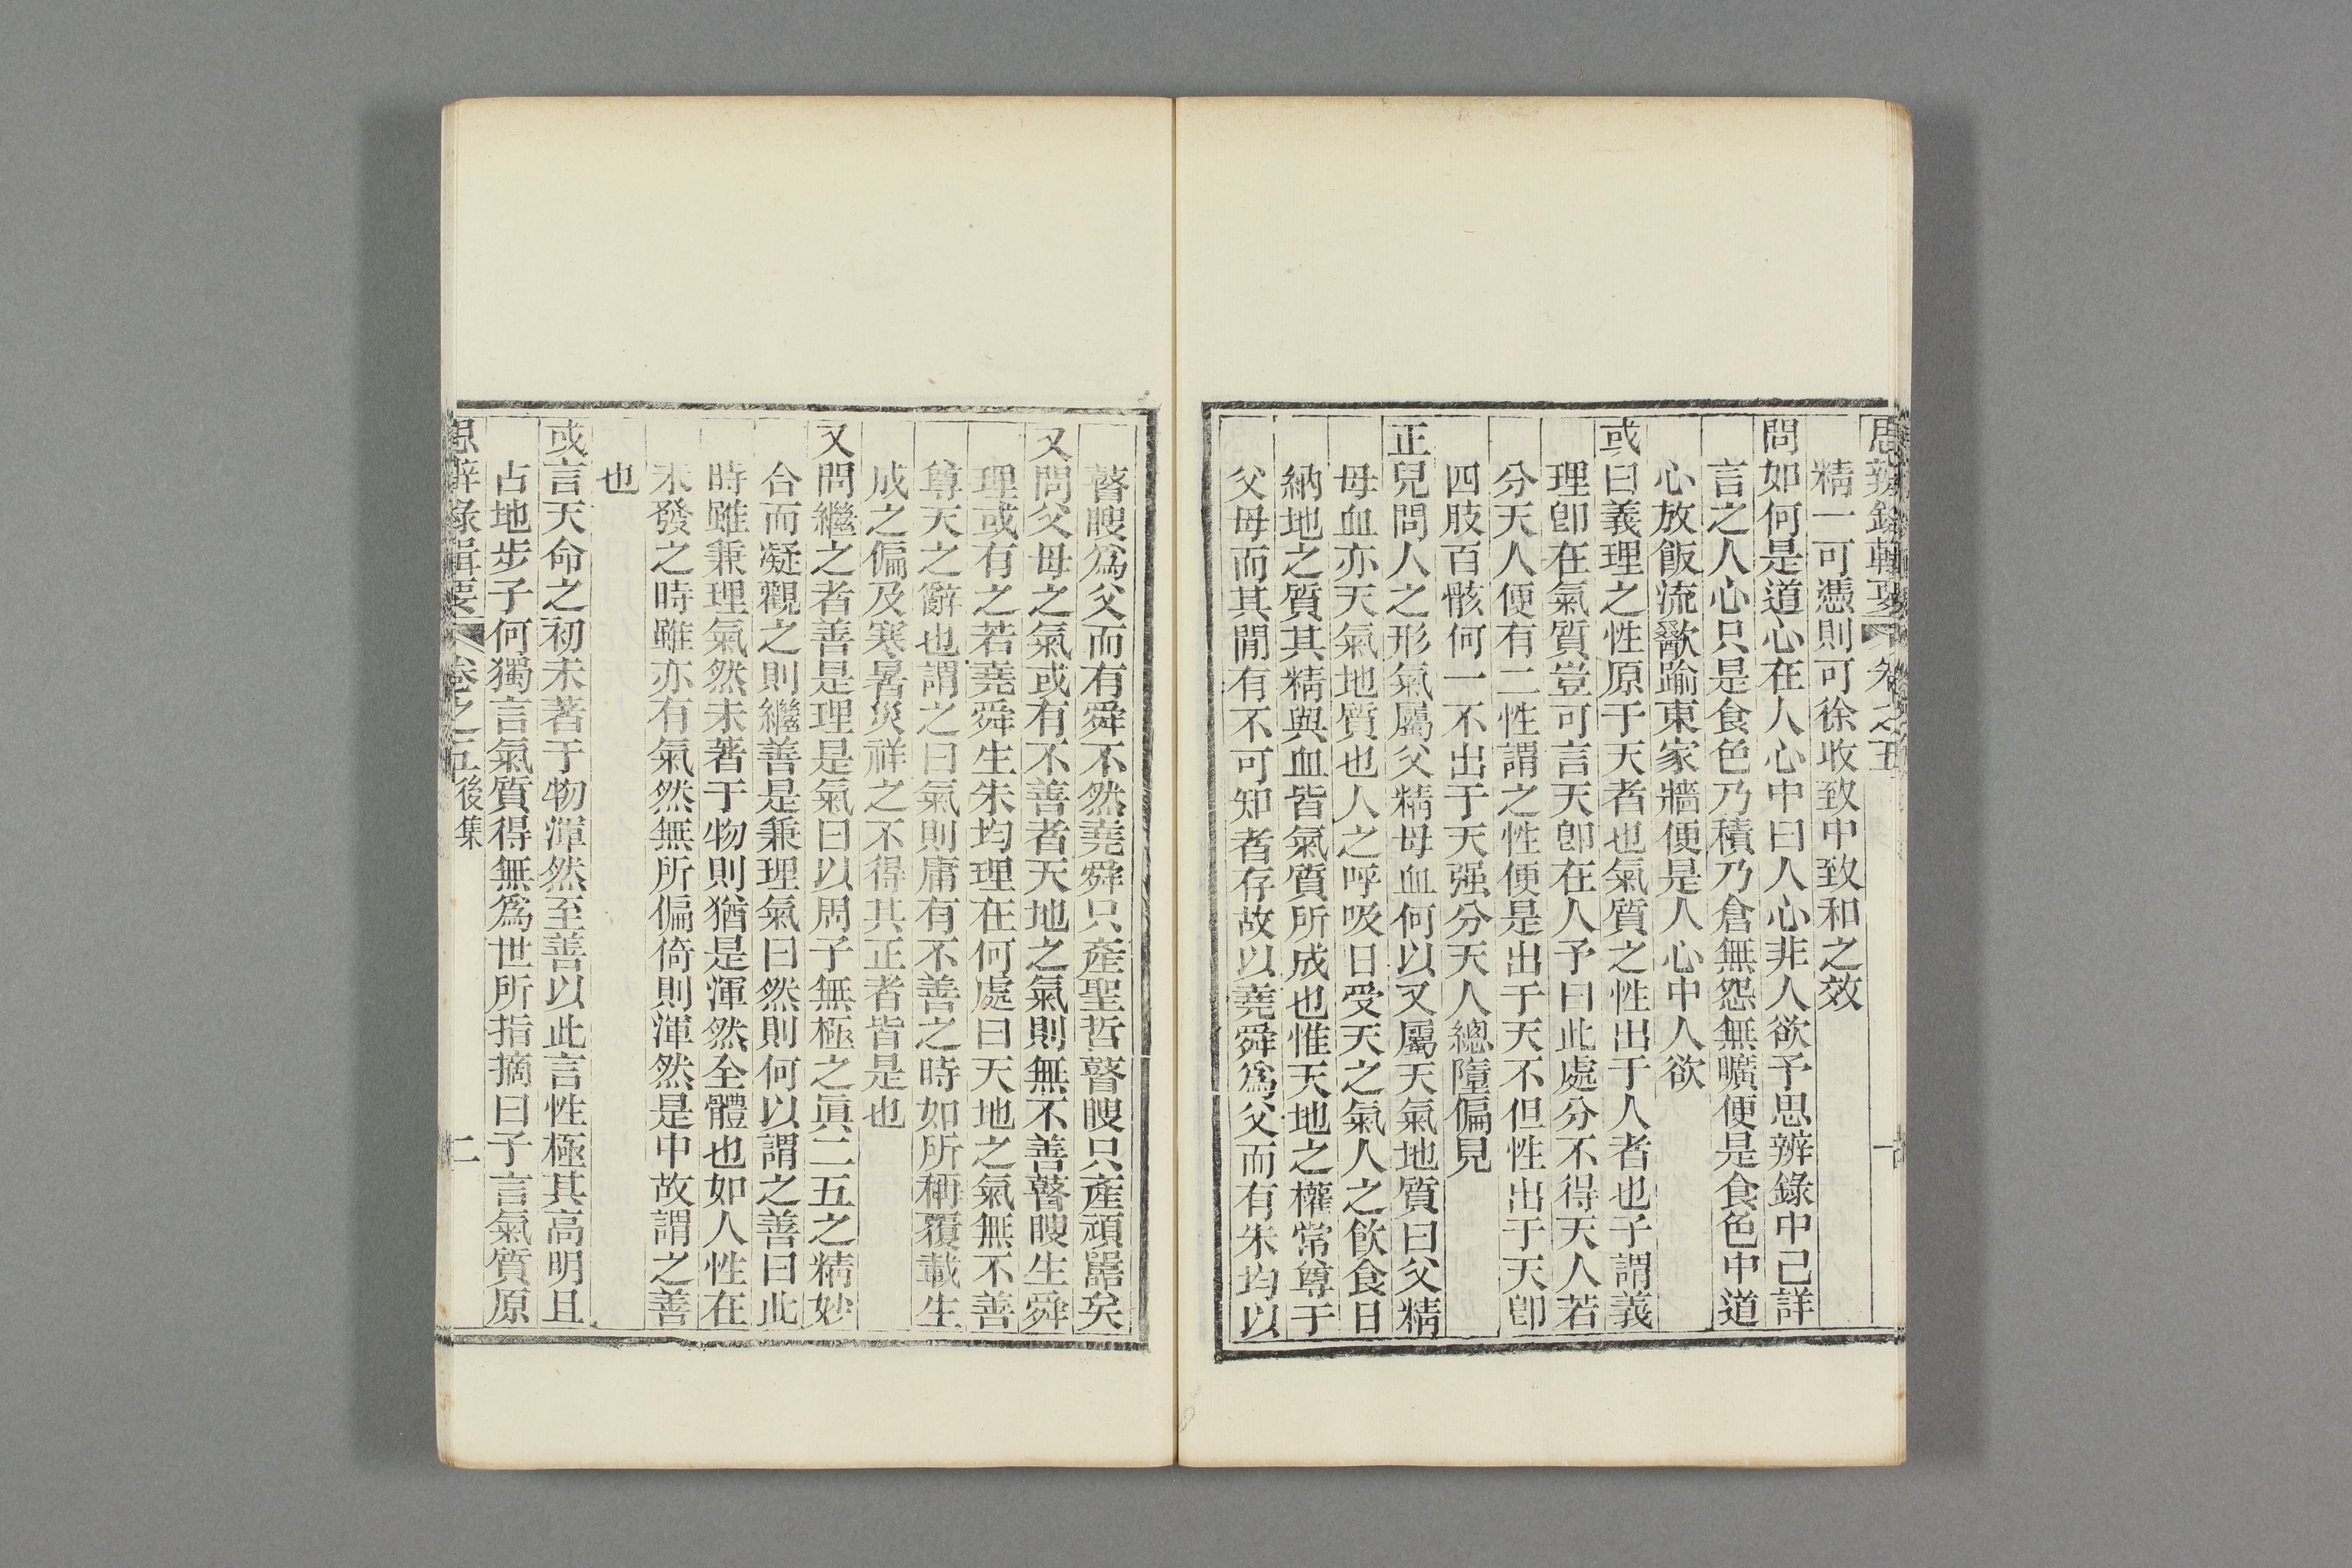 思辨錄輯要 卷之五
精一可憑則可徐收致中致和之效
問如何是道心在人心中曰人心非人欲予思辨錄中己詳
言之人心只是食色乃積乃倉無怨無曠便是食色中道
心放飯流歠踰東家牆便是人心中人欲
或曰義理之性原于天者也氣質之性出于人者也子謂義
理卽在氣質豈可言天卽在人予曰此處分不得天人若
分天人便有二性謂之性便是出于天不但性出于天卽
四肢百骸何一不出于天强分天人總墮偏見
正兒問人之形氣屬父精母血何以又屬天氣地質曰父精
母血亦天氣地質也人之呼吸日受天之氣人之飲食日
納地之質其精與血皆氣質所成也惟天地之權常尊于
父母而其閒有不可知者存故以堯舜爲父而有朱均以
瞽瞍爲父而有舜不然堯舜只產聖哲瞽瞍只產頑嚚矣
又問父母之氣或有不善者天地之氣則無不善瞽瞍生舜
理或有之若堯舜生朱均理在何處曰天地之氣無不善
尊天之辭也謂之曰氣則庸有不善之時如所稱覆載生
成之偏及寒暑災祥之不得其正者皆是也
又問繼之者善是理是氣曰以周子無極之眞二五之精妙
合而凝觀之則繼善是兼理氣曰然則何以謂之善曰此
時雖兼理氣然未著于物則猶是渾然全體也如人性在
未發之時雖亦有氣然無所偏倚則渾然是中故謂之善
也
或言天命之初未著于物渾然至善以此言性極其高明且
占地步子何獨言氣質得無爲世所指摘曰子言氣質原
思辨錄輯要 卷之五後集 二